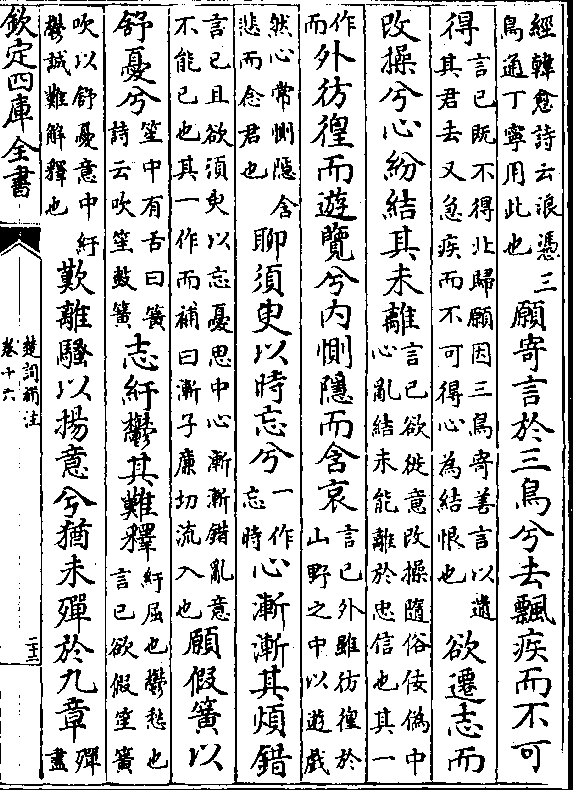 經韓愈詩云浪憑三
鳥通丁寧用此也
願寄言於三鳥兮去飄疾而不可
得
言己既不得北歸願因三鳥寄善言以遺
其君去又急疾而不可得心為結恨也
欲遷志而
改操兮心紛結其未離
言己欲徙意改操隨俗佞偽中
心亂結未能離於忠信也其一
作
而
外彷徨而遊覽兮內惻隱而含哀
言己外雖彷徨於
山野之中以遊戲
然心常惻隱含
悲而念君也
聊須臾以時忘兮
一作
忘時
心漸漸其煩錯
言己且欲須臾以忘憂思中心漸漸錯亂意
不能已也其一作而補曰漸子廉切流入也
願假簧以
舒憂兮
笙中有舌曰簧
詩云吹笙鼓簧
志紆鬱其難釋
紆屈也鬱愁也
言己欲假笙簧
吹以舒憂意中紆
鬱誠難解釋也
歎離騷以揚意兮猶未殫於九章
殫
盡
欽定四庫全書
楚詞補注
卷十六
二十三